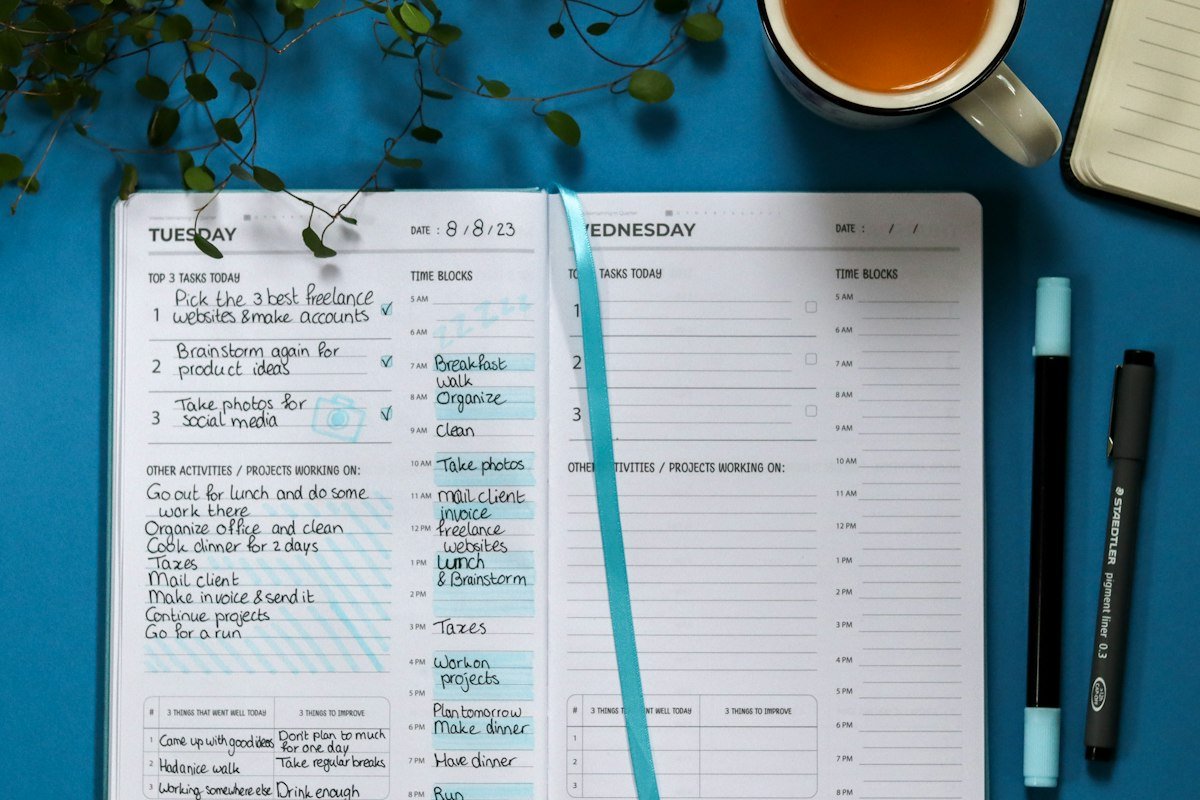 TUESDAY
DATE : 8/8/23
TOP 3 TASKS TODAY
1 Pick the 3 best freelance
websites & make accounts
2 Brainstorm again for
product ideas
3 Take photos for
social media
OTHER ACTIVITIES / PROJECTS WORKING ON:
Go out for lunch and do some
work there
Organize office and clean
Cook dinner for 2 days
Taxes
Mail client
Make invoice & send it
Continue projects
Go for a run
# 3 THINGS THAT WENT WELL TODAY 3 THINGS TO IMPROVE
1 Came up with good ideas Don't plan to much
for one day
2 Had a nice walk Take regular breaks
3 Working somewhere else Drink enough
TIME BLOCKS
5 AM
zzzzzz
6 AM
7 AM Breakfast
walk
8 AM Organize
9 AM Clean
10 AM Take photos
11 AM mail client
invoice
12 PM freelance
websites
1 PM Lunch
& Brainstorm
2 PM
3 PM Taxes
4 PM Work on
projects
5 PM
Plan tomorrow
6 PM Make dinner
7 PM Have dinner
8 PM Run
WEDNESDAY
DATE : / /
TASKS TODAY
1
2
3
ACTIVITIES / PROJECTS WORKING ON:
# 3 THINGS WENT WELL TODAY 3 THINGS TO IMPROVE
1
2
3
TIME BLOCKS
5 AM
6 AM
7 AM
8 AM
9 AM
10 AM
11 AM
12 PM
1 PM
2 PM
3 PM
4 PM
5 PM
6 PM
7 PM
8 PM
STAEDTLER pigment liner 0.3